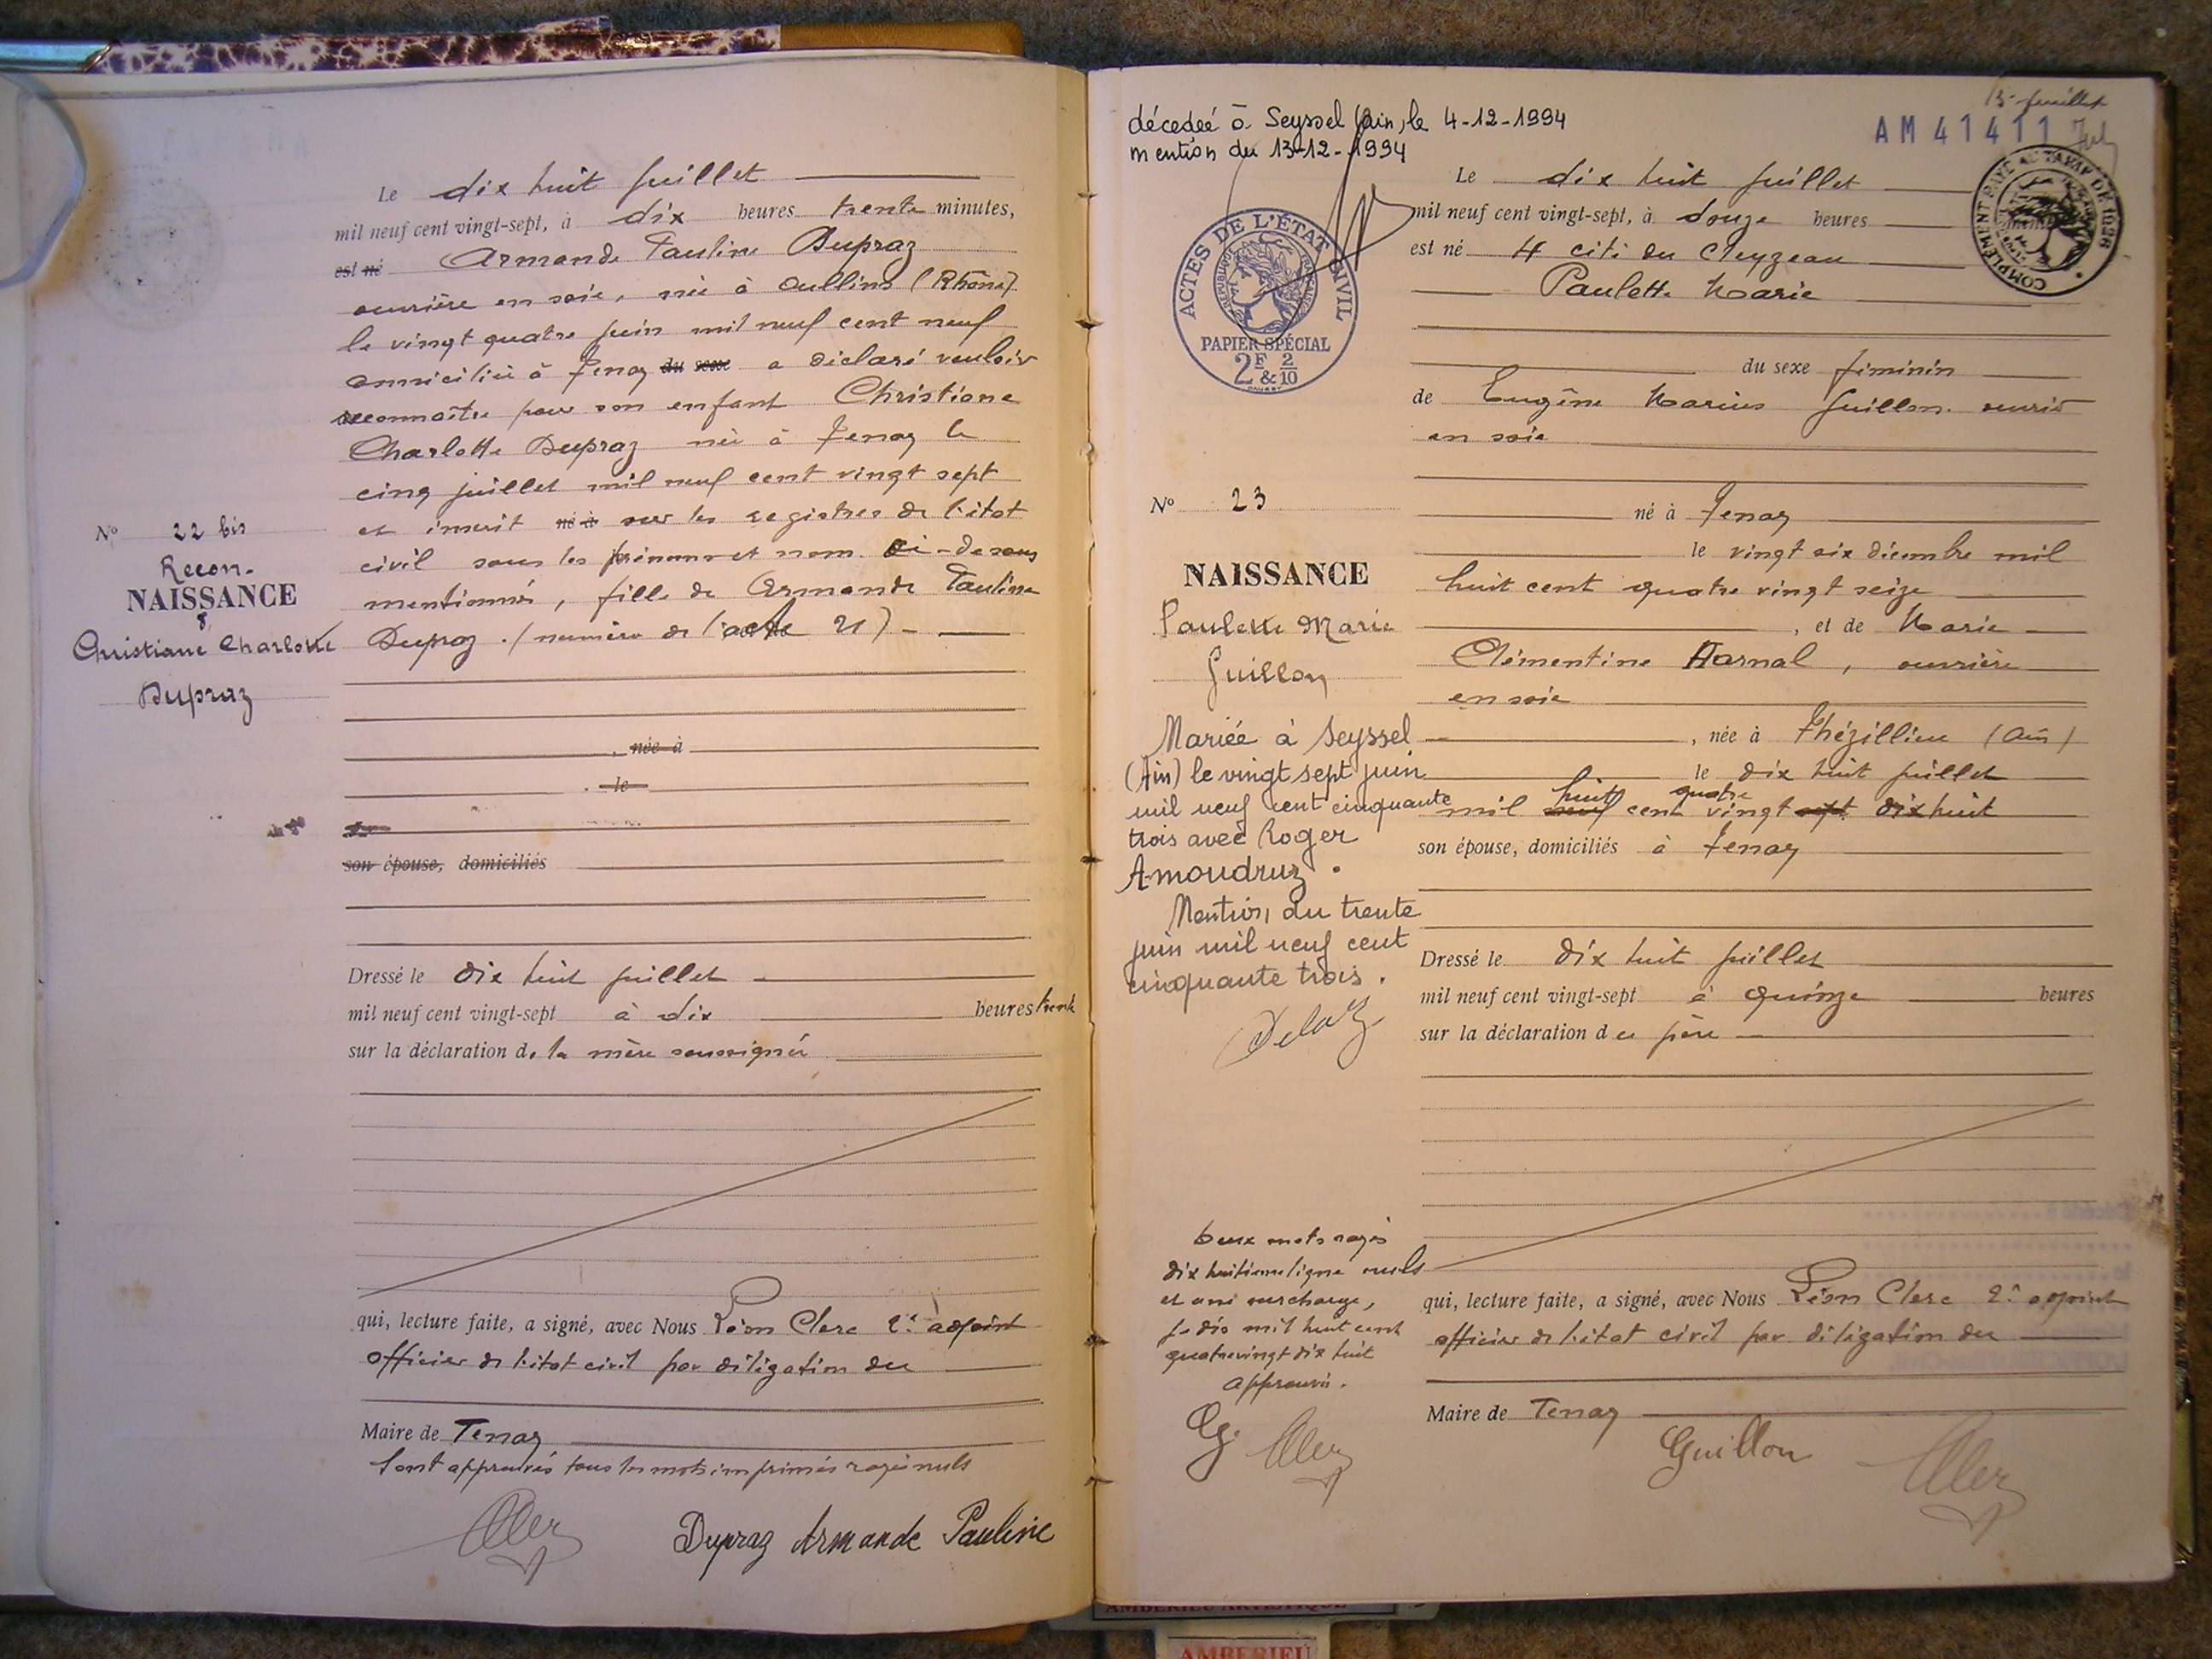 Le dix huit juillet
mil neuf cent vingt-sept, à dix heures trente minutes,
est né Armande Pauline Dupraz
ouvrière en soie, née à Oullins (Rhône)
le vingt quatre juin mil neuf cent neuf
domiciliée à Tenay du sexe a déclaré vouloir
reconnaître pour son enfant Christiane
Charlotte Dupraz née à Tenay le
cinq juillet mil neuf cent vingt sept
et inscrit né à sur les registres de l'état
civil sous les prénoms et nom ci-dessus
mentionnés, fille de Armande Pauline
Dupraz. (numéro de l'acte 21)
, née à
, le
son épouse, domiciliés
Dressé le dix huit juillet
mil neuf cent vingt-sept à dix heures trente
sur la déclaration de la mère soussignée
qui, lecture faite, a signé, avec Nous Léon Clerc 2e adjoint
officier de l'état civil par délégation du
Maire de Tenay
Sont approuvés tous les mots imprimés rayés nuls
Dupraz Armande Pauline
No 22 bis
Recon-
NAISSANCE
Christiane Charlotte
Dupraz
décedeé à Seyssel Ain, le 4-12-1994
mention du 13-12-1994
AM 41411
juillet
COMPLÉMENT PAYÉ AU TARIF DE 1926
ACTES DE L'ÉTAT CIVIL
RÉPUBLIQUE FRANÇAISE
PAPIER SPÉCIAL
2F & 2/10
Le dix huit juillet
mil neuf cent vingt-sept, à douze heures
est né 4 cité du Cleyzeau
Paulette Marie
du sexe féminin
de Eugène Marius Guillon ouvrier
en soie
né à Tenay
le vingt six décembre mil
huit cent quatre vingt seize
, et de Marie
Clémentine Harnal, ouvrière
en soie
, née à Thézillieu (Ain)
le dix huit juillet
mil neuf huit cent quatre vingt sept dix huit
son épouse, domiciliés à Tenay
Dressé le dix huit juillet
mil neuf cent vingt-sept à quinze heures
sur la déclaration du père
qui, lecture faite, a signé, avec Nous Léon Clerc 2e adjoint
officier de l'état civil par délégation du
Maire de Tenay
Guillon
No 23
NAISSANCE
Paulette Marie
Guillon
Mariée à Seyssel
(Ain) le vingt sept juin
mil neuf cent cinquante
trois avec Roger
Amoudruz.
Mention du trente
juin mil neuf cent
cinquante trois.
Deux mots rayés
dix huitième ligne nuls
et une surcharge,
je dis mil huit cent
quatre vingt dix huit
approuvés.
Gg.
AMBERIEU ARTISTIQUE
AMBERIEU